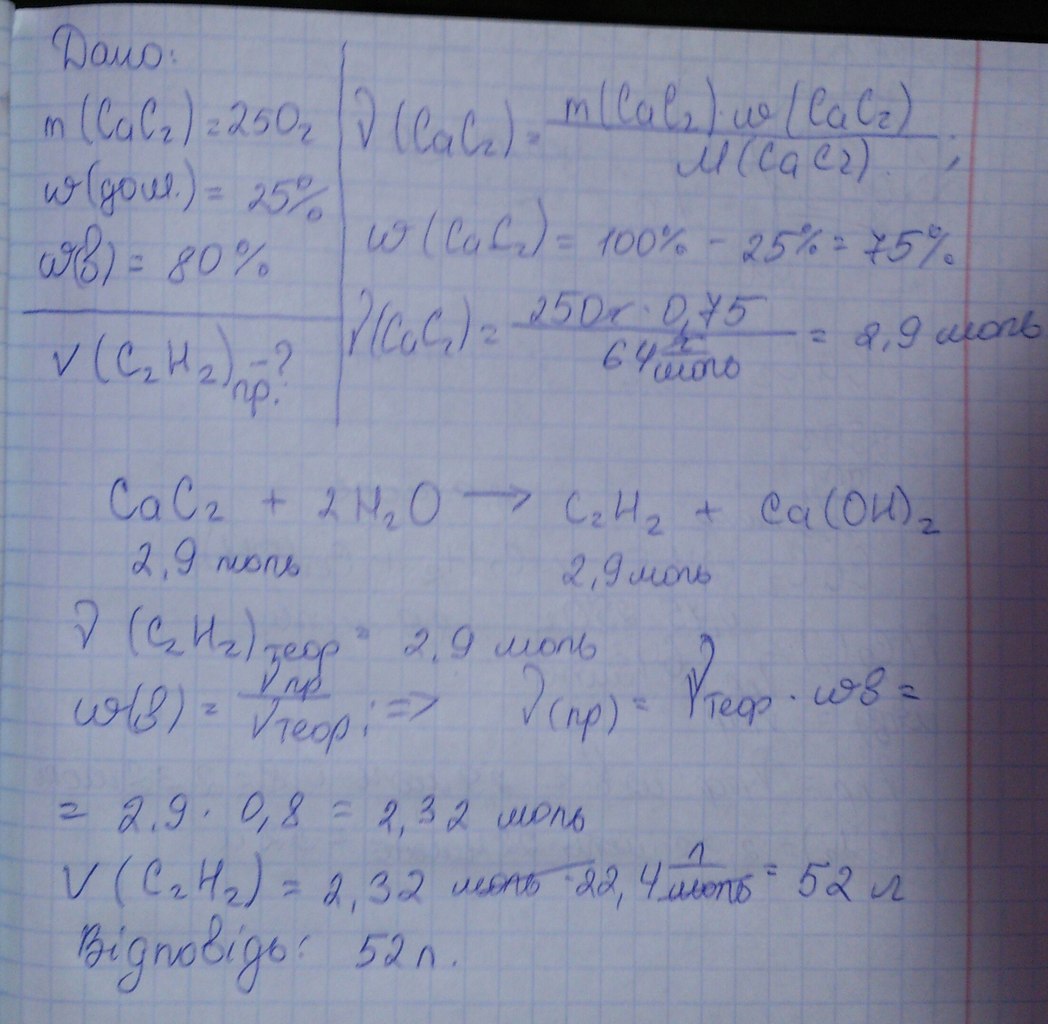 Дано:
m (CaC2) = 250г
w(дом.) = 25%
w(в) = 80%
V (C2H2)пр. - ?
ν (CaC2) = m(CaC2) · w (CaC2) / M(CaC2) ;
w (CaC2) = 100% - 25% = 75%
ν(CaC2) = 250г · 0,75 / 64 г/моль = 2,9 моль
CaC2 + 2H2O → C2H2 + Ca(OH)2
2,9 моль 2,9 моль
ν (C2H2)теор = 2,9 моль
w(в) = νпр / νтеор ; => ν(пр) = νтеор · wв =
= 2,9 · 0,8 = 2,32 моль
V (C2H2) = 2,32 моль · 22,4 л/моль = 52 л
Відповідь: 52 л.